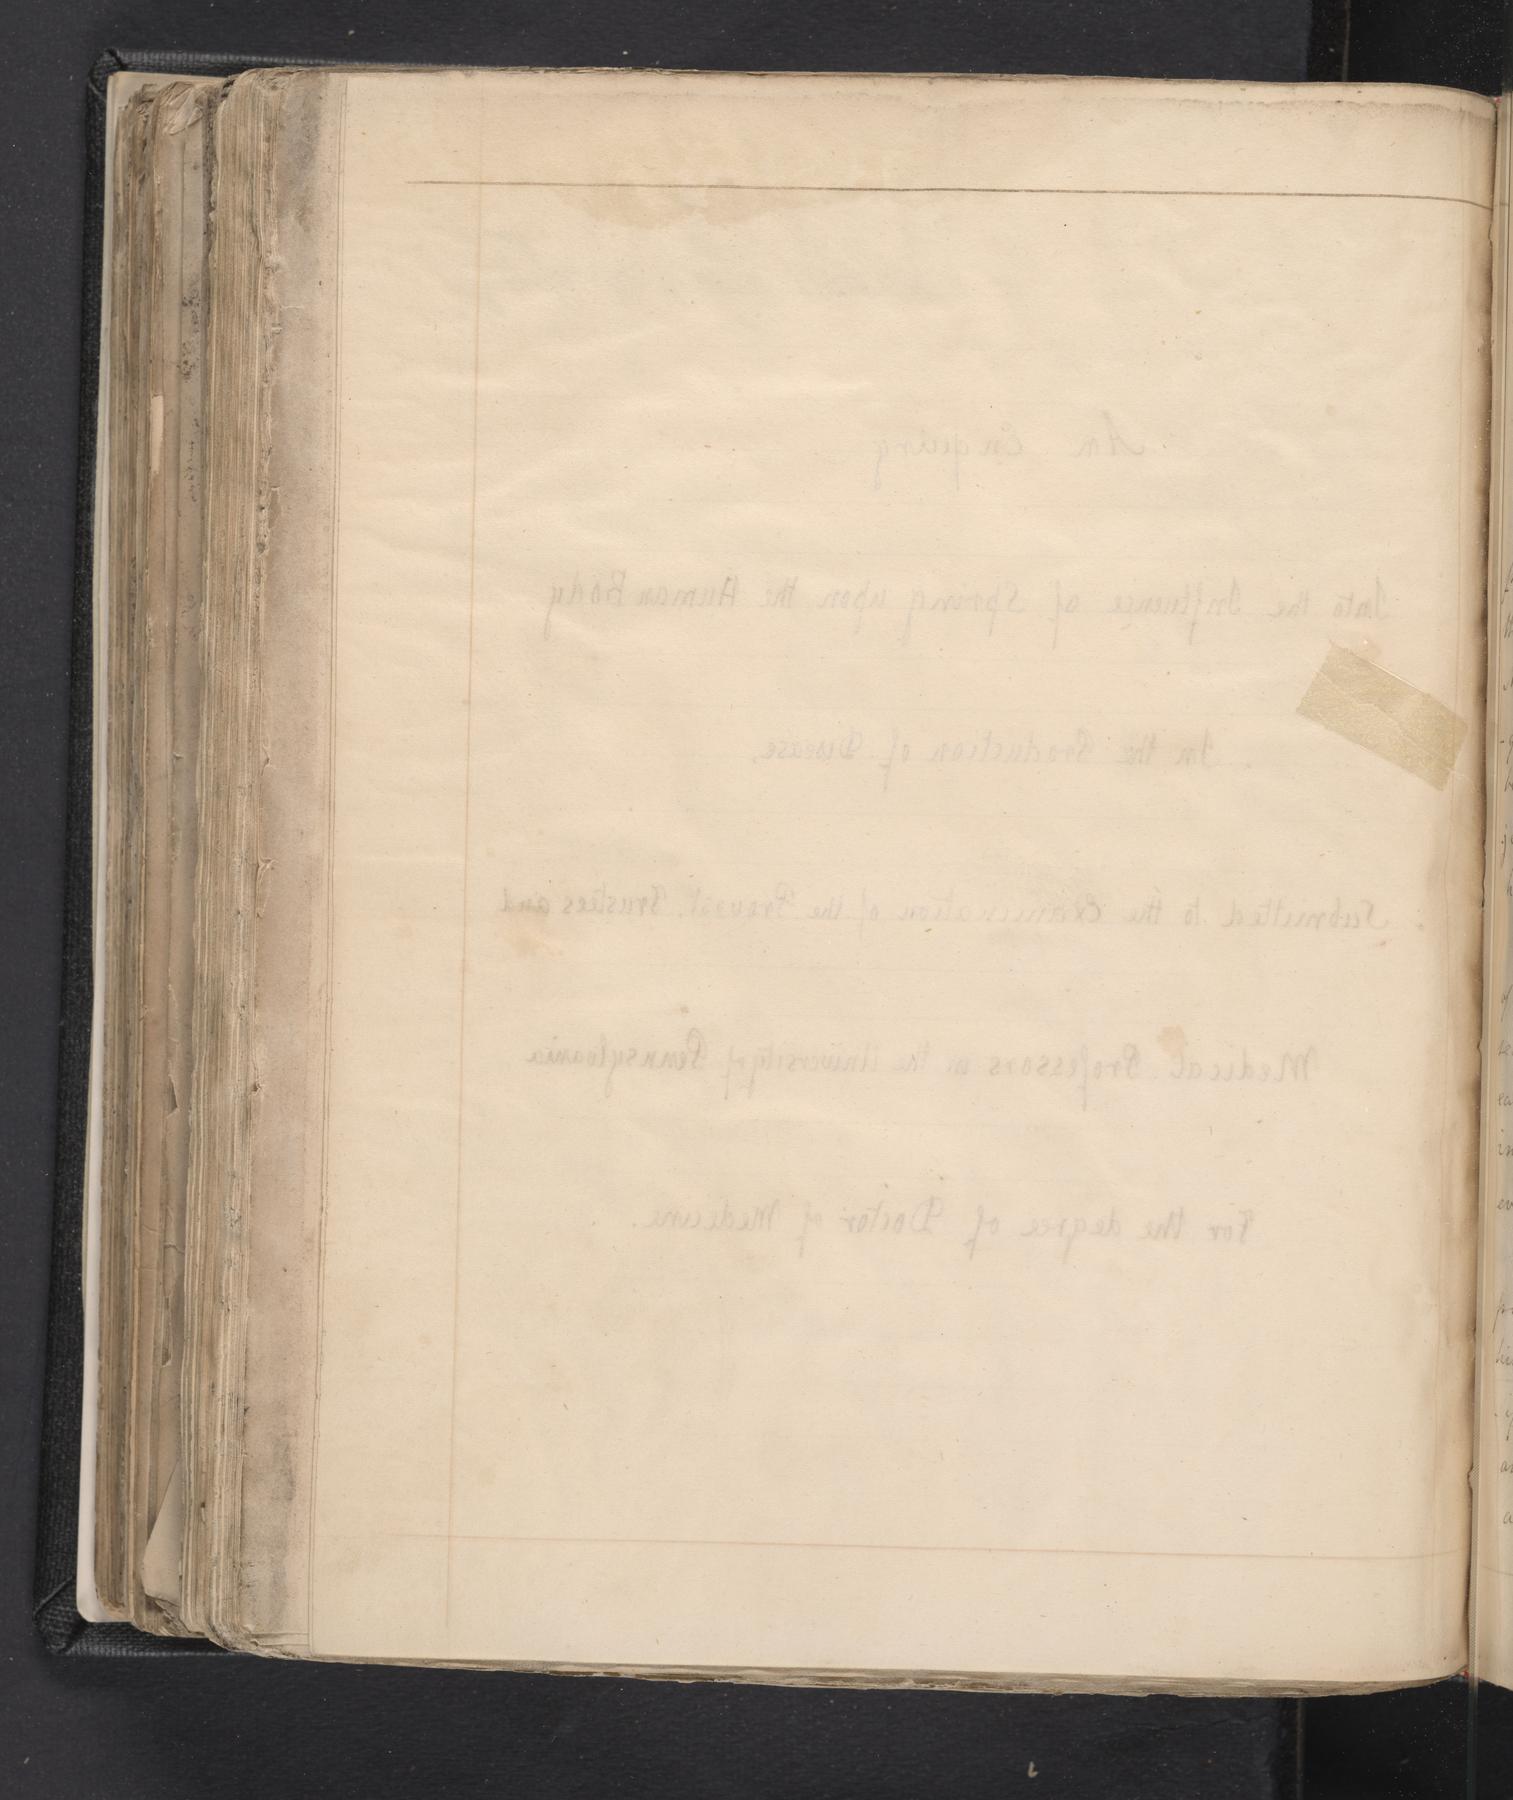 An Enquiry
Into the Influence of Spring upon the Human Body
In the Production of Disease.
Submitted to the Examination of the Provost, Trustees and
Medical Professors in the University of Pennsylvania
For the degree of Doctor of Medicine.